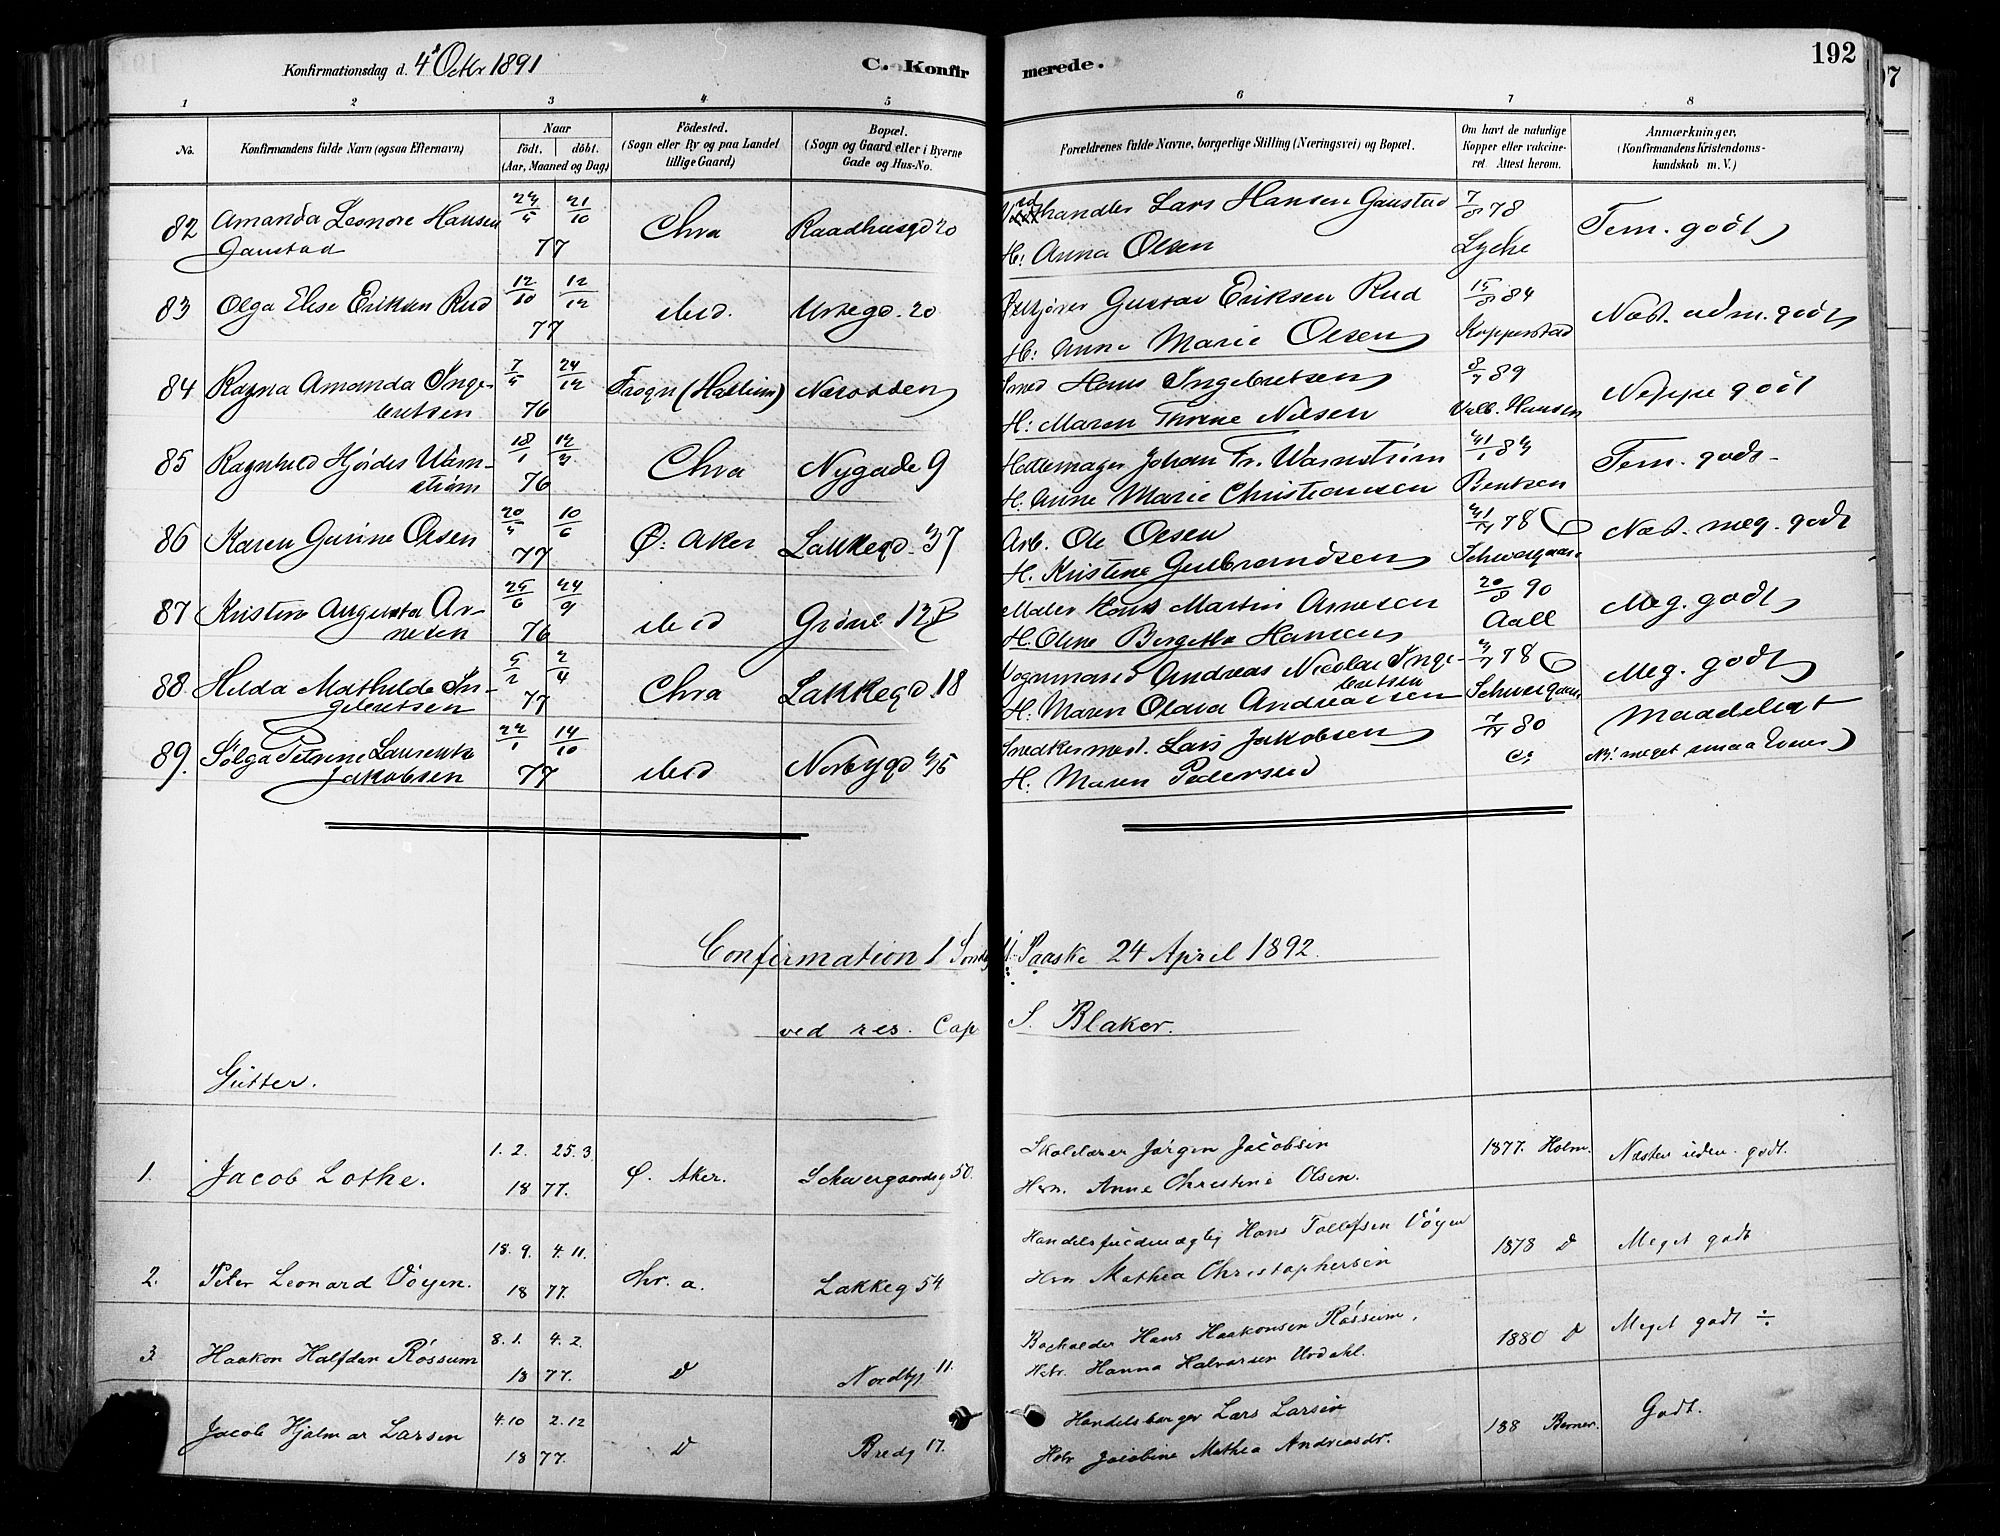 Konfirmationsdag d. 4de Octbr 1891
C. Konfirmerede.
192
1 2 3 4 5 6 7 8
No.
Konfirmandens fulde Navn (ogsaa Efternavn)
Naar
født. døbt.
(Aar, Maaned og Dag)
Födested.
(Sogn eller By og paa Landet
tillige Gaard)
Bopæl.
(Sogn og Gaard eller i Byerne
Gade og Hus-No.
Forældrenes fulde Navne, borgerlige Stilling (Næringsvei) og Bopæl.
Om havt de naturlige
Kopper eller vaccine-
ret Attest herom.
Anmærkninger.
(Konfirmandens Kristendoms-
kundskab m. V.)
82 Amanda Leonore Hansen 21/10 Chra Raadhusgd 20 Vedhandler Lars Hansen Gaustad 7/8 78 Tem. godt
Gaustad 77 H: Anna Olsen Lyche
83 Olga Elise Eriksen Rud 12/10 12/12 ibid. Urtegd. 20 Gustav Eriksen Rud 15/8 84 Næst. udm. godt
77 H: Anne Marie Olsen Kopperstad
84 Ragna Amanda Inge- 24/12 Frogn Nesodden Smed Hans Ingebretsen 8/7 89 Neppe godt
bretsen 76 H: Maren Thrine Nilsen Valb. Hansen
85 Ragnhild Hjørdis Wärn- 18/1 12/3 Chra Nygade 9 Hattemager Johan Fr. Warnstrøm Tem. godt
strøm 76 H. Anne Marie Christiansen Bentzen
86 Karen Gurine Olsen 10/6 Ø. Aker Lakkegd. 37 Arb. Ole Olsen 78 Næst. meg. godt
77 H. Kristine Gulbrandsen Schwesgaard
87 Kristine Augusta Ar- 24/9 ibid Grønl 12 B Maler Hans Martin Arnesen 20/8 90 Meg. godt
nesen 76 H. Oline Bergette Hansen Aall
88 Hilda Mathilde In- 2/4 Chra Lakkegd. 18 Vognmand Andreas Nicolai Inge- 78 Meg. godt
gebretsen 77 bretsen
H. Maren Olava Andreassen
89. Petrine Laurentze 22/1 14/10 ibid Norbygd Snedkermest. Lars Jakobsen 80 Maadeligt
Jakobsen 77 H. Maren Pedersen (NB: meget smaa Evner)
Confirmation 1 Sønd. Paaske 24 April 1892.
ved res. Cap S. Blaker.
Gutter.
1. Jacob Lothe. 1.2. 25.3 Ø. Aker. Schwergaardsg 50. Jørgen Jacobsen 1877. Holm. Næsten uden. godt.
18 77. Hun. Anne Christine Olsen.
2. Peter Leonard Vøyen. 18.9. 4.11. Chr.a. Lakkeg 54 Handelsfuldmægtig Hans Tollefsen Vøyen 1878 D Meget godt
18 77. Hun Mathea Christophersen
3 Haakon Halfdan Røssum 8.1. 4.2. D Nordbyg 11. Bogholder Hans Haakonsen Røssum, 1880 D Meget godt ÷
18 77. Hstr. Hanna Halvorsen Urdahl.
Jacob Hjalmar Larsen 4.10 2.12 D Bredg 17. Handelsborger Lars Larsen 188 Berner. Godt.
18 77. Hstr Jacobine Mathea Andreasdr.